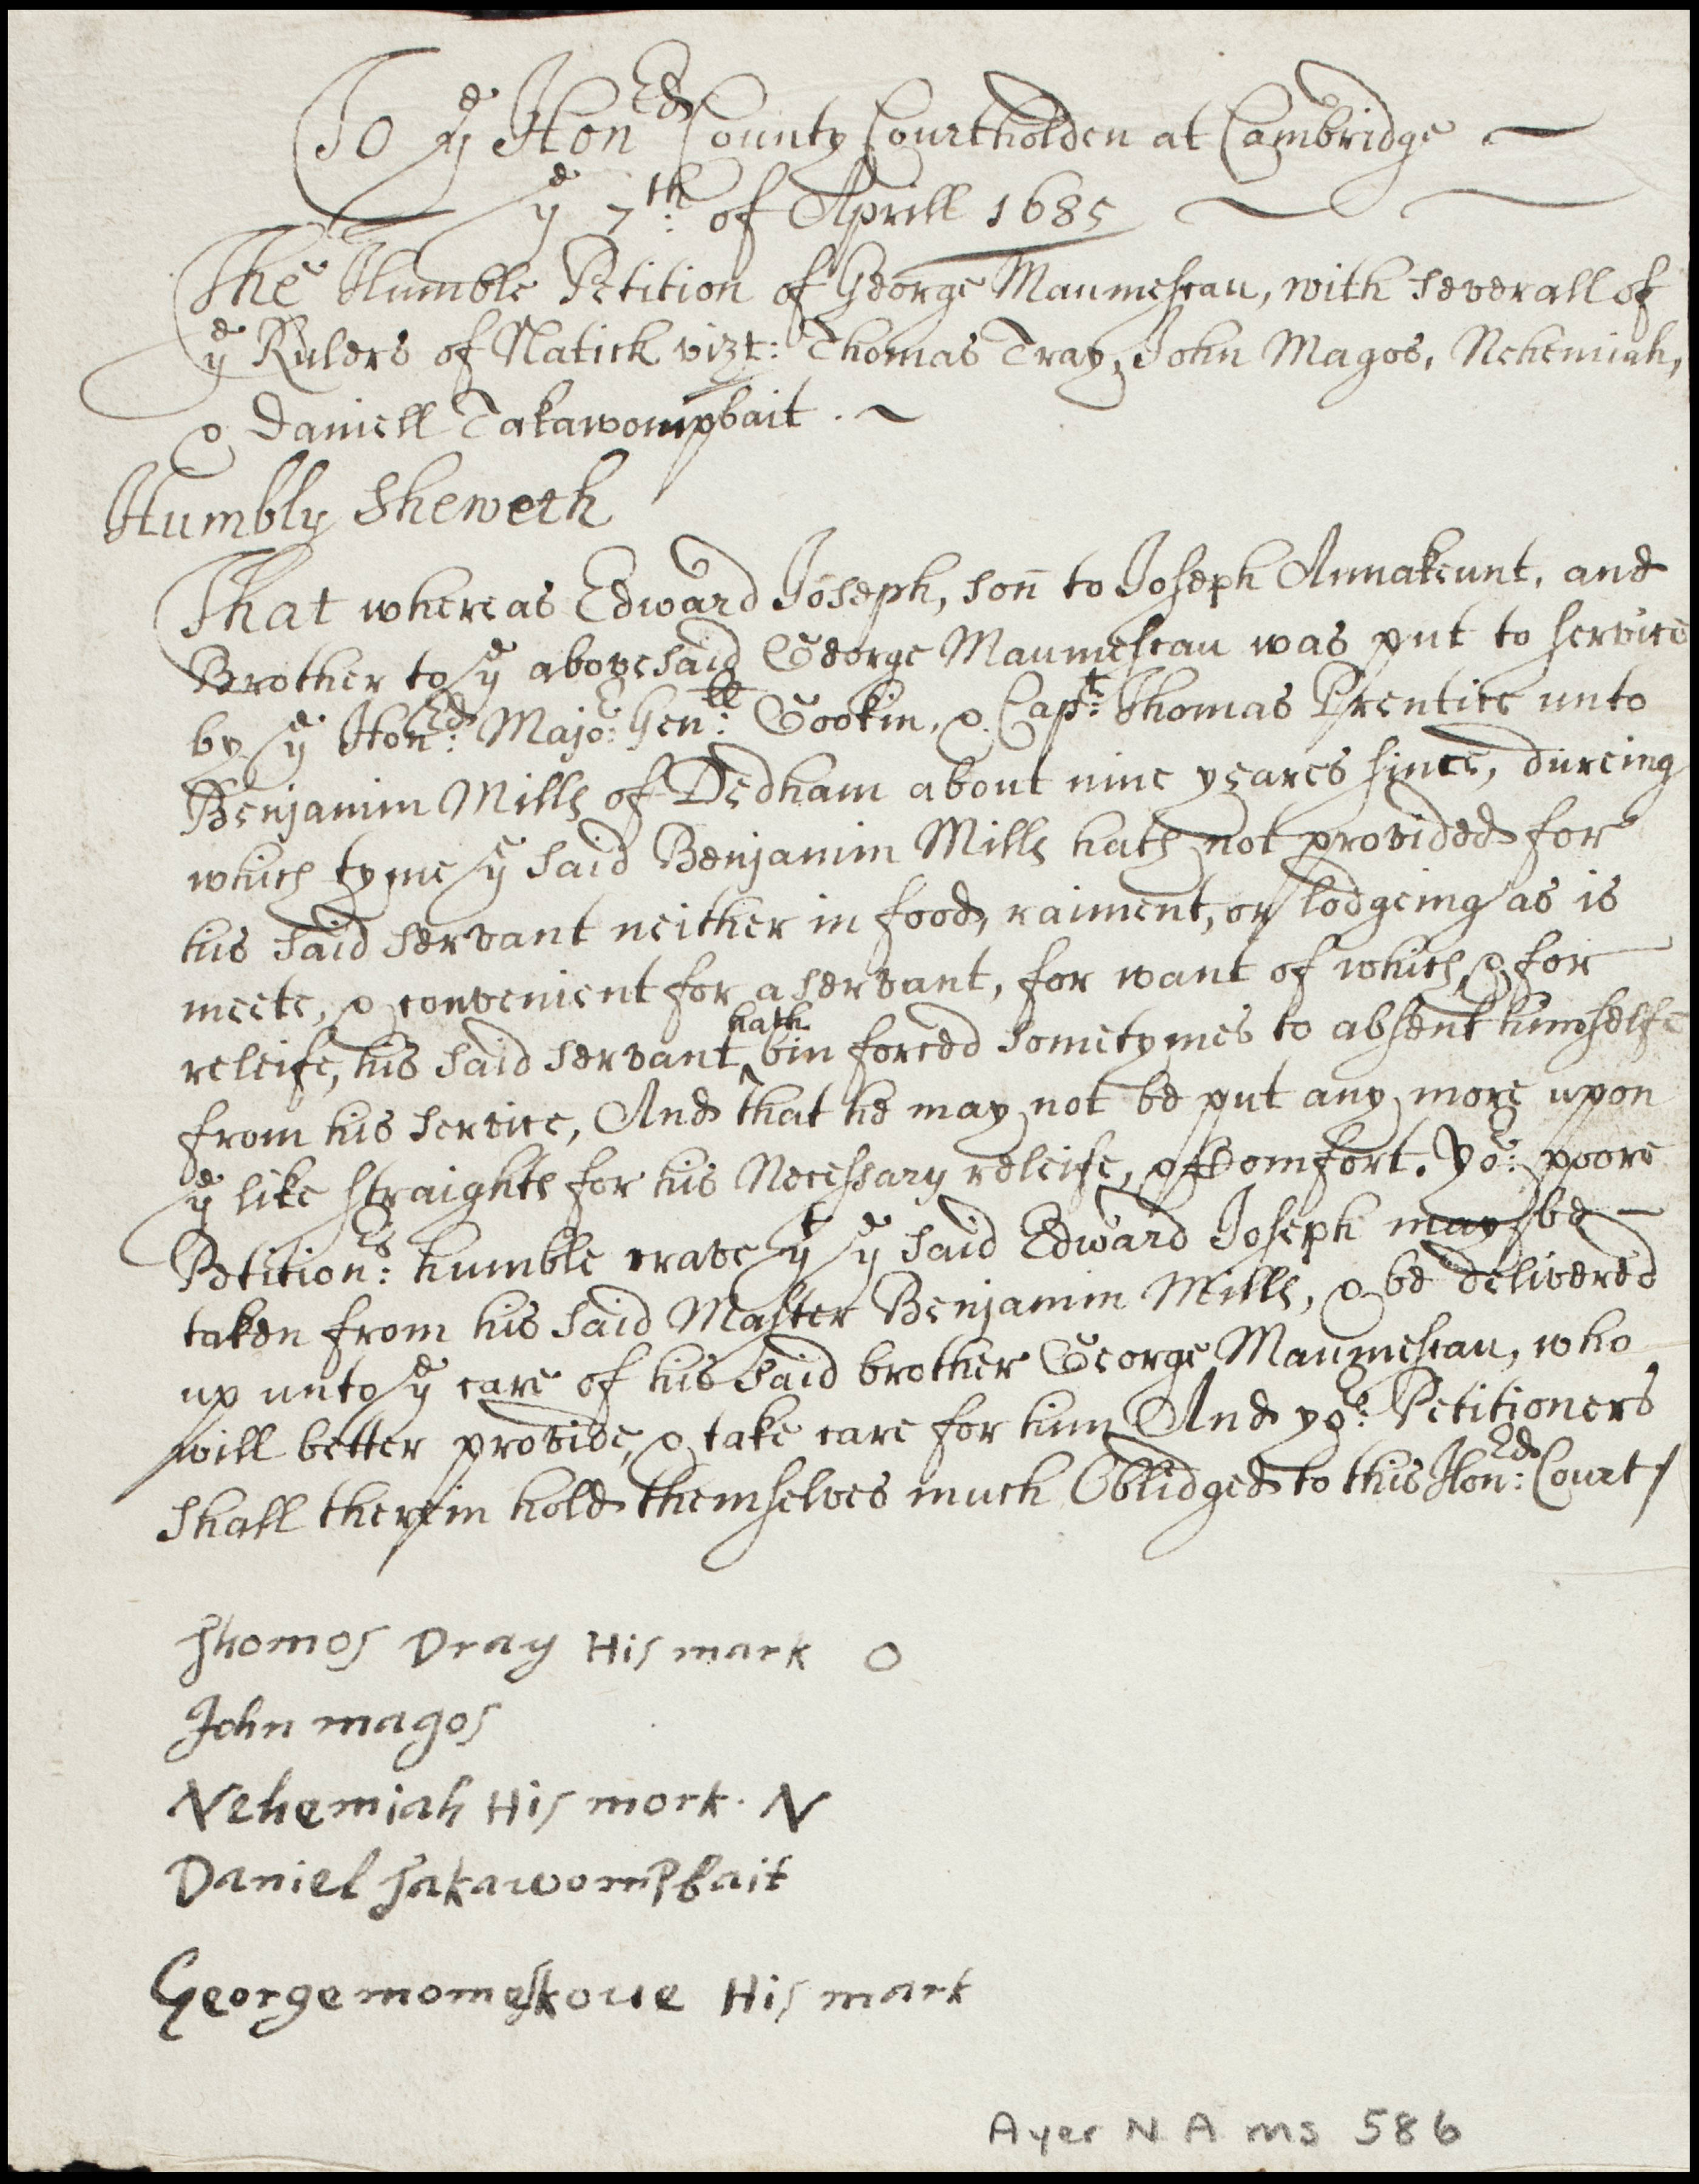 To yᵉ Honᵉᵈ County Court holden at Cambridge
yᵉ 7ᵗʰ: of Aprill 1685
The Humble Petition of George Maumescau, with severall of
yᵉ Rulers of Natick vizt: Thomas Tray, John Magos, Nehemiah,
& Daniell Takawompbait.
Humbly Sheweth
That whereas Edward Joseph, son̄ to Joseph Annakeunt, and
Brother to yᵉ abovesaid George Maumescau was put to service
by yᵉ Honᵉᵈ: Majoʳ: Genˡˡ: Gookin, & Capᵗ: Thomas Prentice unto
Benjamin Mills of Dedham about nine yeares since, dureing
which tyme yᵉ said Benjamin Mills hath not provided for
his said servant neither in food, raiment, or lodgeing as is
meete, & convenient for a servant, for want of which, & for
releife, his said servant hath bin forced sometymes to absent himselfe
from his service, And that he may not be put any more upon
yᵉ like straights for his Necessary releife, & Comfort. Yoʳ: poore
Petitionʳˢ: humble crave yᵗ yᵉ said Edward Joseph may be
taken from his said Master Benjamin Mills, & be delivered
up unto yᵉ care of his said brother George Maumescau, who
will better provide, & take care for him And yoʳ: Petitioners
shall therein hold themselves much Oblidged to this Honᵉᵈ: Court/
Thomos Dray His mark O
John magos
Nehemiah His mork. N
Daniel Takawompbait
George momeskoue His mark
Ayer N A ms 586